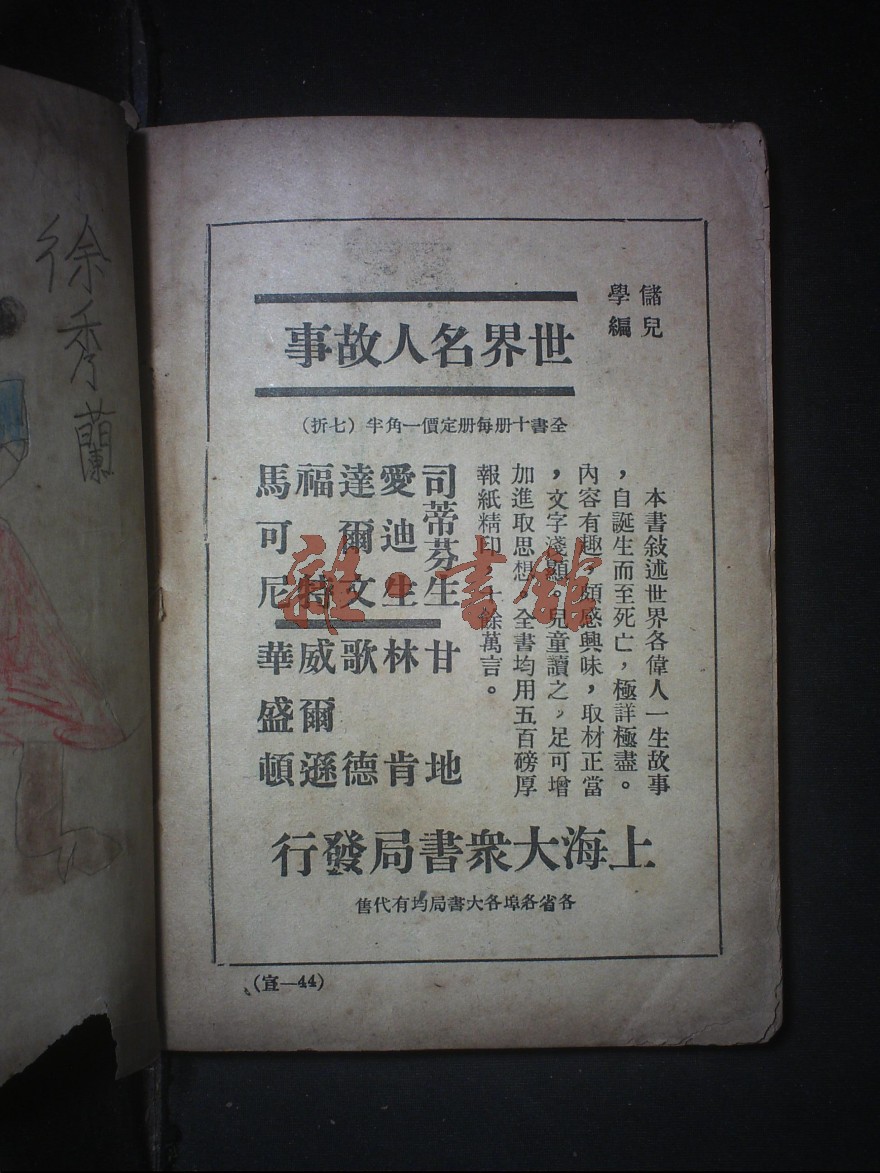 儲兒
學編
世界名人故事
全書十册每册定價一角半（七折）
本書敍述世界各偉人一生故事
，自誕生而至死亡，極詳極盡。
內容有趣，頗感興味，取材正當
，文字淺顯。兒童讀之，足可增
加進取思想。全書均用五百磅厚
報紙精印，十餘萬言。
司蒂芬生
愛迪生
達爾文
福特
馬可尼
甘地
林肯
歌德
威爾遜
華盛頓
上海大衆書局發行
各省各埠各大書局均有代售
(宣—44)
徐秀蘭
雜·書館